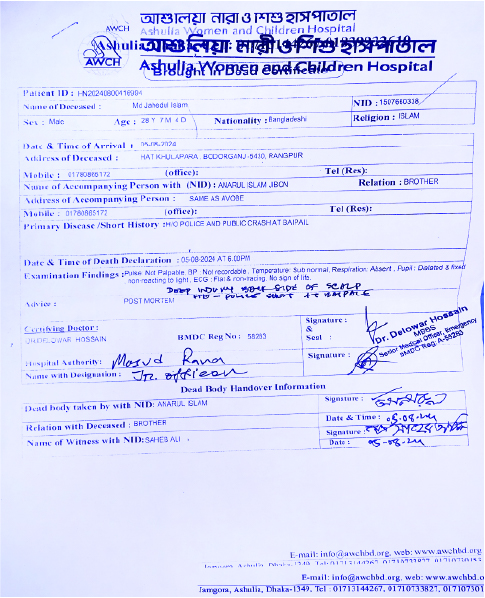 আশুলিয়া নারী ও শিশু হাসপাতাল
AWCH Ashulia Women and Children Hospital
আশুলিয়া নারী ও শিশু হাসপাতাল
AWCH Ashulia Women and Children Hospital
Brought in Dead Certificate
Patient ID : HN20240800418984
Name of Deceased : Md Jahedul Islam NID : 1507660338
Sex : Male Age : 28 Y 7 M 4 D Nationality : Bangladeshi Religion : ISLAM
Date & Time of Arrival : 05-08-2024
Address of Deceased : HATIKHULAPARA, BODORGANJ-5430, RANGPUR
Mobile : 01780865172 (office): Tel (Res):
Name of Accompanying Person with (NID) : ANARUL ISLAM JIBON Relation : BROTHER
Address of Accompanying Person : SAME AS AVOBE
Mobile : 01780865172 (office): Tel (Res):
Primary Disease /Short History : H/O POLICE AND PUBLIC CRASH AT BAIPAIL
Date & Time of Death Declaration : 05-08-2024 AT 6.00PM
Examination Findings : Pulse: Not Palpable, BP : Not recordable, Temperature: Subnormal, Respiration: Absent , Pupil : Dialated & fixed
non-reacting to light , ECG : Flat & non-tracing, No sign of life.
DEEP INJURY BACK SIDE OF SCALP
H/O - POLICE SHOOT AT BAIPAIL
Advice : POST MORTEM
Certifying Doctor : Signature : & Seal :
DR.DELOWAR HOSSAIN BMDC Reg No : 59263
Dr. Delowar Hossain
MBBS
Senior Medical Officer, Emergency
BMDC Reg. A-59263
Hospital Authority: Masud Rana Signature :
Name with Designation : Jr. officer
Dead Body Handover Information
Dead body taken by with NID: ANARUL ISLAM Signature :
Date & Time : 05-08-24
Relation with Deceased : BROTHER Signature :
Name of Witness with NID: SAHEB ALI Date : 05-08-24
E-mail: info@awchbd.org, web: www.awchbd.org
E-mail: info@awchbd.org, web: www.awchbd.o
Jamgora, Ashulia, Dhaka-1349, Tel : 01713144267, 01710733827, 017107301